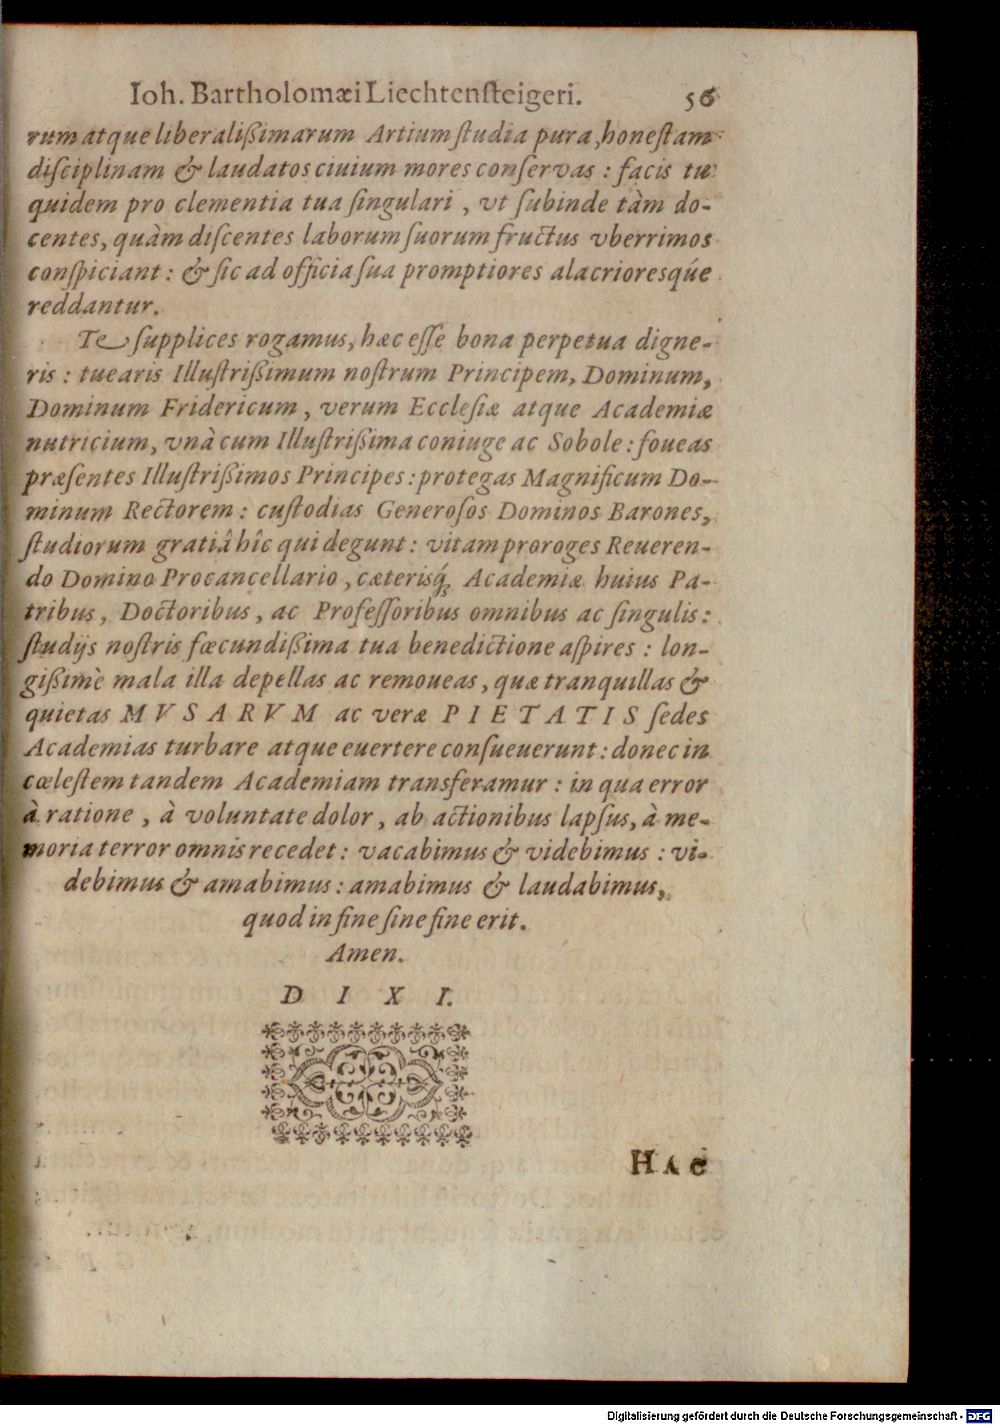 Ioh. Bartholomæi Liechtenſteigeri. 56
rum atque liberalißimarum Artium ſtudia pura, honeſtam
diſciplinam & laudatos ciuium mores conſervas : facis tu
quidem pro clementia tua ſingulari, vt ſubinde tàm do-
centes, quàm diſcentes laborum ſuorum fructus vberrimos
conſpiciant : & ſic ad officia ſua promptiores alacrioresq́ue
reddantur.
Te ſupplices rogamus, hæc eſſe bona perpetua digne-
ris : tuearis Illuſtrißimum noſtrum Principem, Dominum,
Dominum Fridericum, verum Eccleſiæ atque Academiæ
nutricium, vnà cum Illuſtrißima coniuge ac Sobole : foueas
præſentes Illuſtrißimos Principes : protegas Magnificum Do-
minum Rectorem : cuſtodias Generoſos Dominos Barones,
ſtudiorum gratiâ hîc qui degunt : vitam proroges Reueren-
do Domino Procancellario, cæterisq́; Academiæ huius Pa-
tribus, Doctoribus, ac Profeſſoribus omnibus ac ſingulis :
ſtudijs noſtris fœcundißima tua benedictione aſpires : lon-
gißimè mala illa depellas ac remoueas, quæ tranquillas &
quietas MVSARVM ac veræ PIETATIS ſedes
Academias turbare atque euertere conſueuerunt : donec in
cœleſtem tandem Academiam transferamur : in qua error
à ratione, à voluntate dolor, ab actionibus lapſus, à me-
moria terror omnis recedet : vacabimus & videbimus : vi-
debimus & amabimus : amabimus & laudabimus,
quod in fine ſine fine erit.
Amen.
DIXI.
HAC
Digitalisierung gefördert durch die Deutsche Forschungsgemeinschaft - DFG